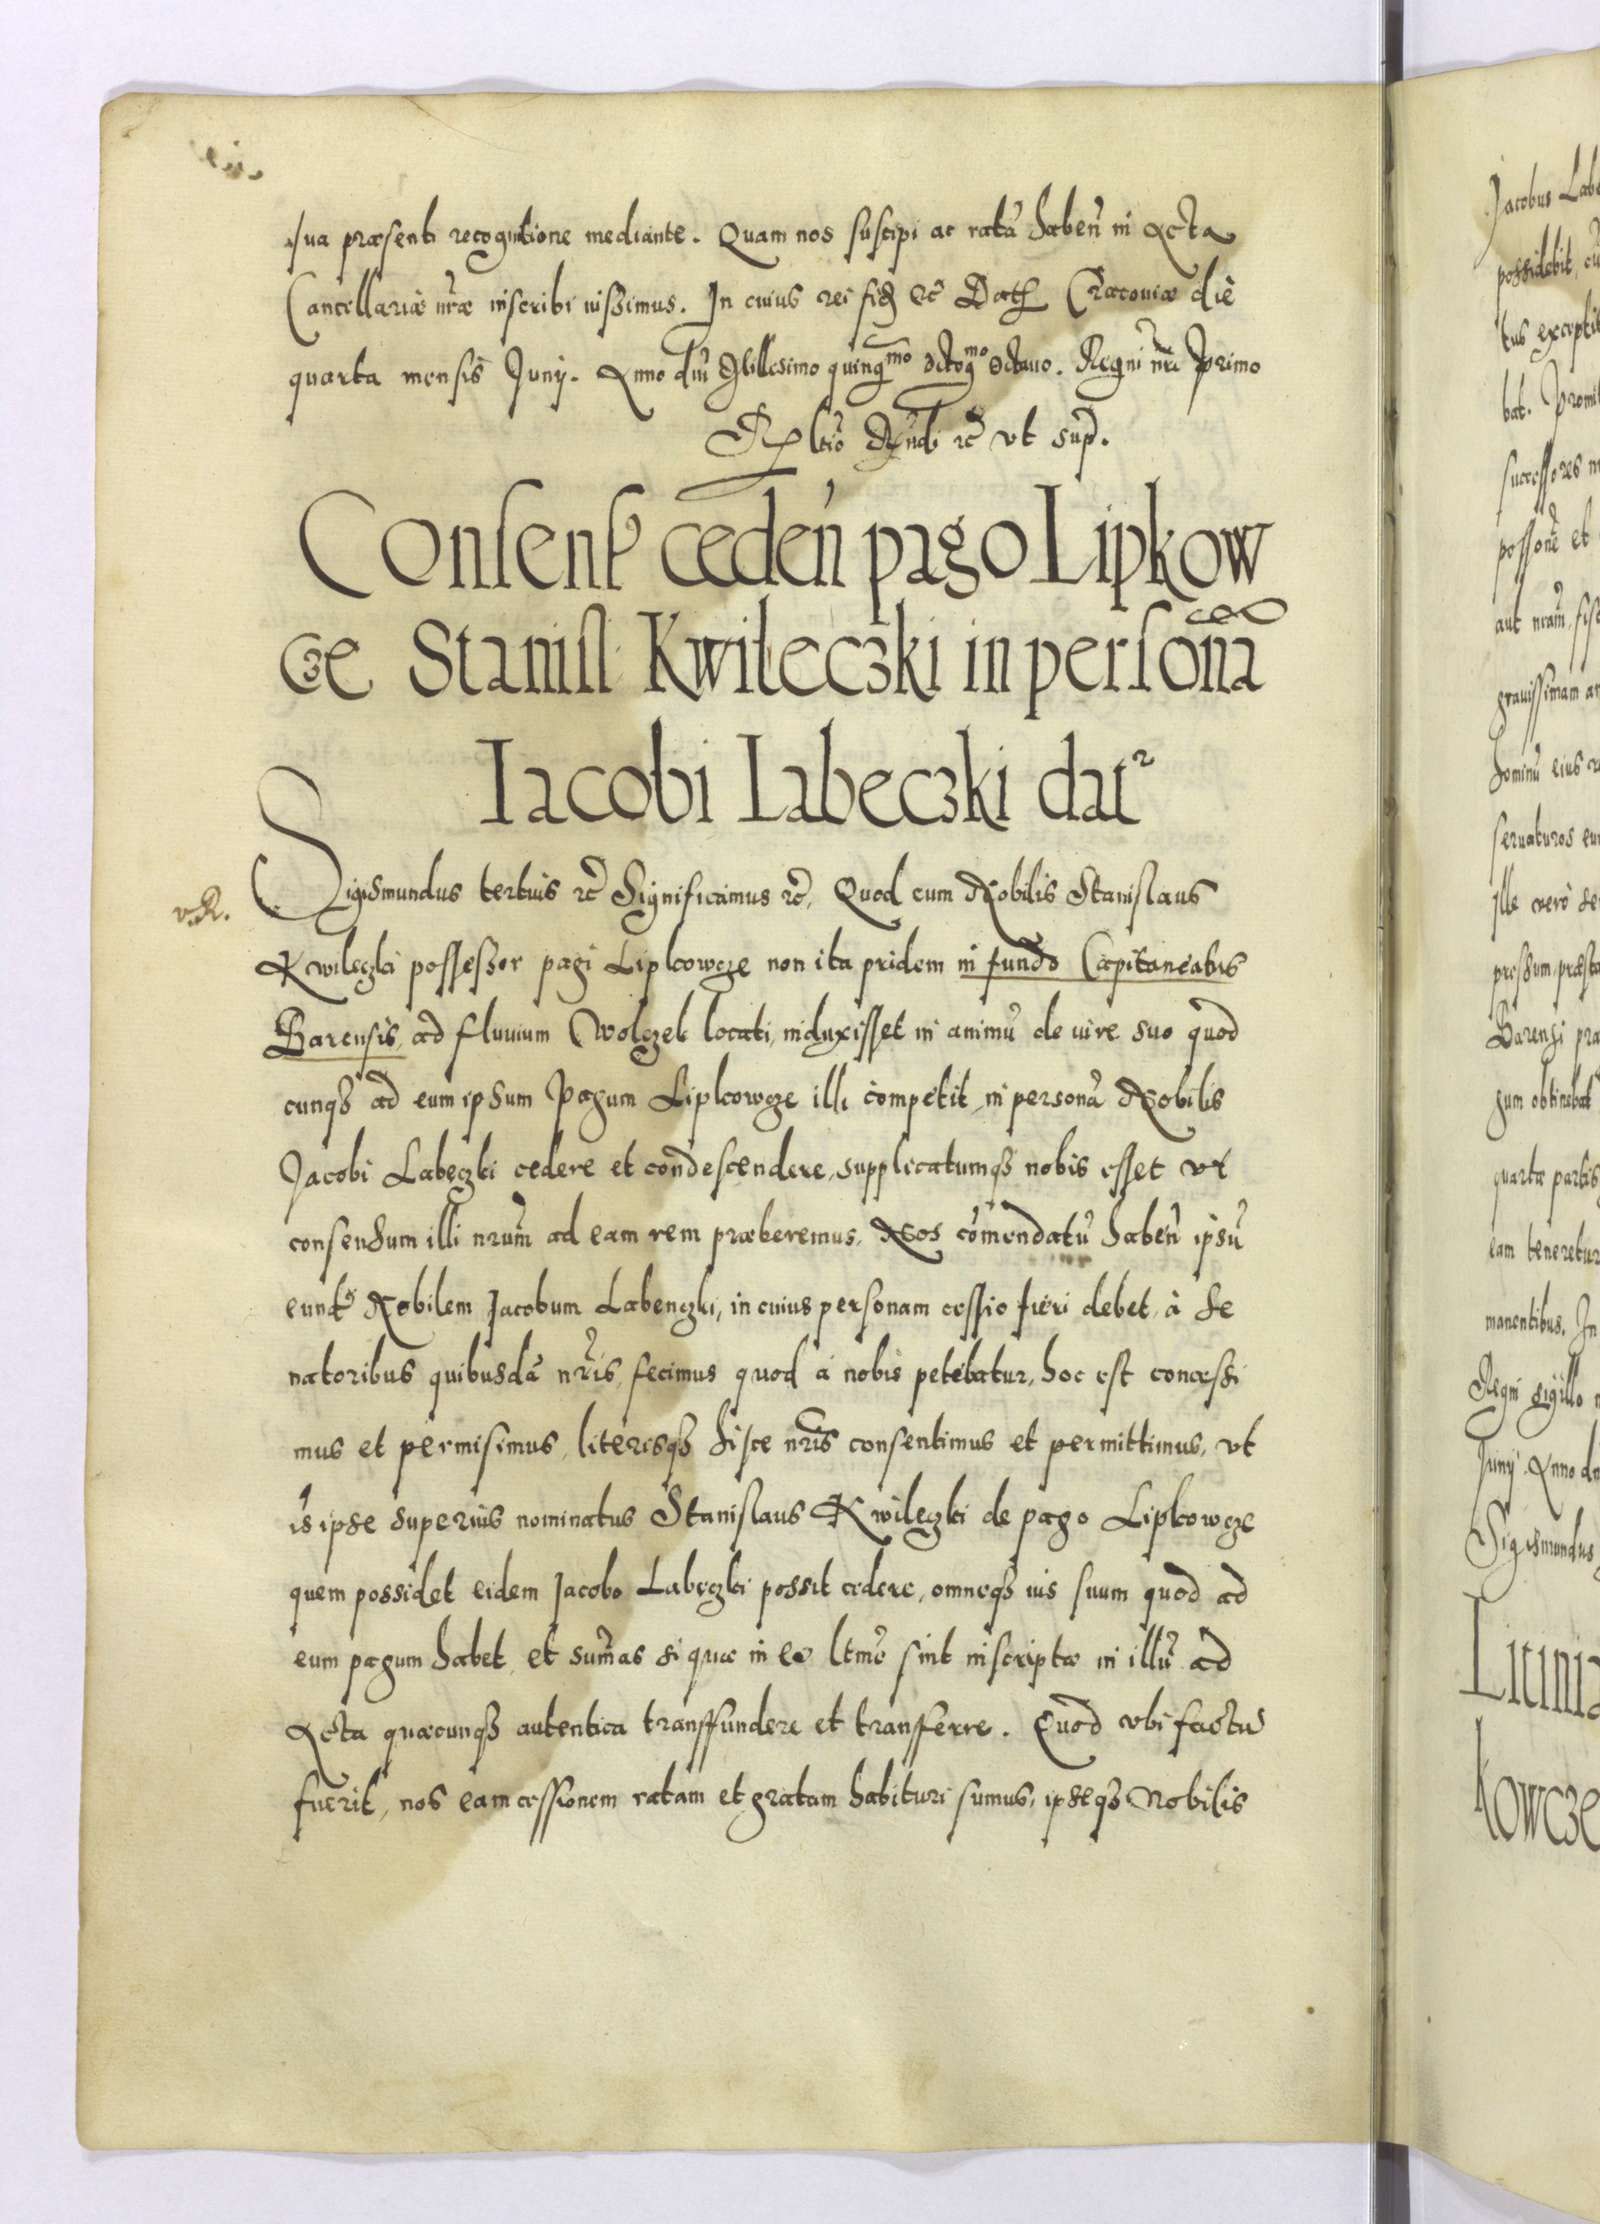 sua præsenti recognitione mediante. Quam nos suscipi ac ratā habeñ in Acta
Cancellariæ nr̃æ inscribi iussimus. In cuius rei fid ec̃ Dat Cracoviæ die
quarta mensis Junij. Anno dni Millesimo quingmo octogmo octavo. Regni nri Primo
ut sup.
Consens cedeń pago Lipkow
cze Stanisl: Kwileczki in personā
Iacobi Labeczki dat
Sigismundus tertius rc̃ Significamus rc̃, Quod cum Nobilis Stanislaus
Kwileczki possessor pagi Lipkowcze non ita pridem in fundo Capitaneatus
Barensis, ad fluvium Wolczek locati, induxisset in animū de iure suo quod
cunqз ad eum ipsum Pagum Lipkowcze illi competit, in personā Nobilis
Jacobi Labęczki cedere et condescendere, supplicatumqз nobis esset ut
consensum illi nrum̃ ad eam rem præberemus. Nos com̃endatū habeñ ipsū
eund Nobilem Jacobum Labenczki, in cuius personam cessio fieri debet, à se
natoribus quibusdā nr̃is, fecimus quod à nobis petebatur, hoc est concessi
mus et permisimus, literisqз hisce nris consentimus et permittimus, ut
is ipse superius nominatus Stanislaus Kwileczki de pago Lipkowcze
quem possidet eidem Jacobo Labęczki possit cedere, omneqз ius suum quod ad
eum pagum habet, et sum̃as si quæ in eo ltmẽ sint inscriptæ in illū ad
Acta quæcunqз autentica transffundere et transfferre. Quod ubi factū
fuerit, nos eam cessionem ratam et gratam habituri sumus, ipseqз Nobilis
v.R.
Jacobus Lab
possidebit
tus excepti
bat. Promit
successores
et
aut nram̃
gravissimam
hominū eius
servaturos
ille vero
pressum præsta
Barensi pra
gum obtinebat
quartæ partis
eam teneretur
manentibus. In
Regni sigillo
Junij. Anno
Sigismundus
Litinia
kowcze